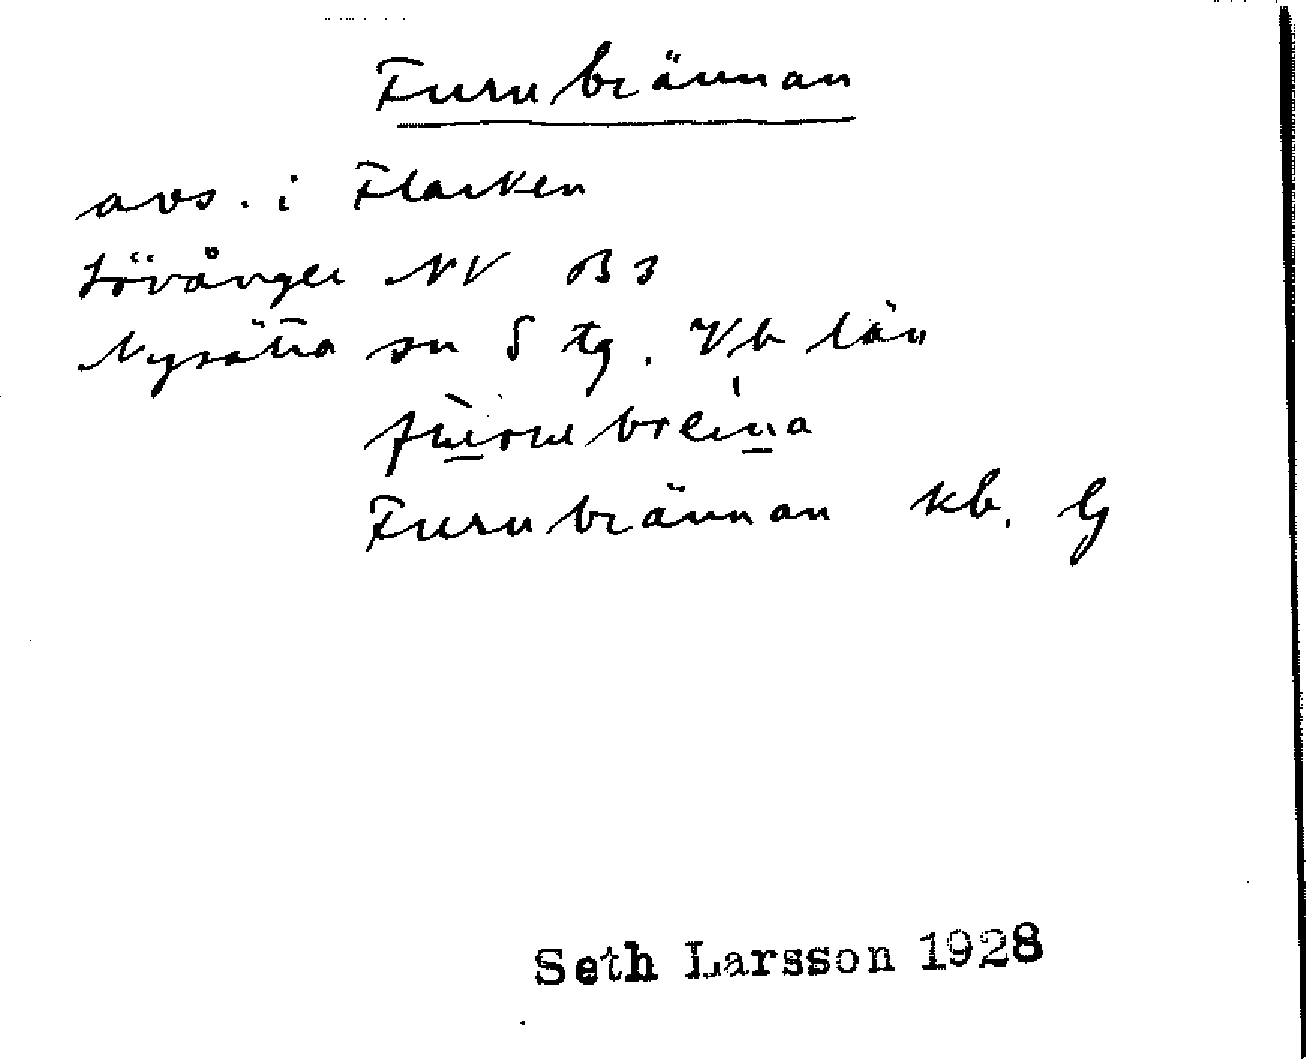 Furubrännan
avs. i Flarken
Lövånger NV B3
Nysätra sn S tg. Vb län
Furubrännan kb. G
Seth Larsson 1928